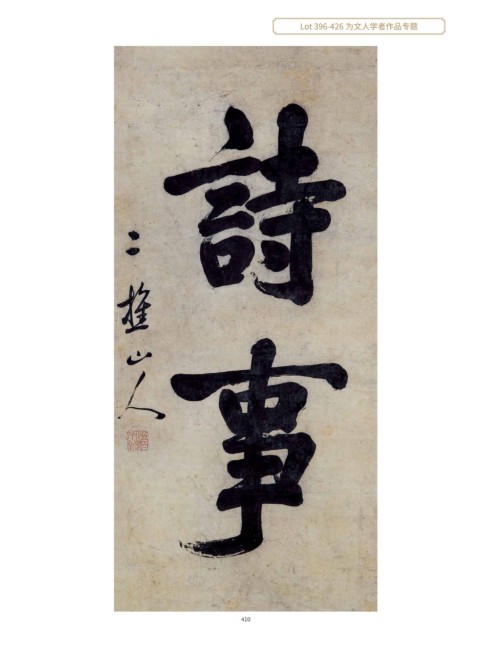 Lot 396-426 为文人学者作品专题
詩事
二樵山人
410